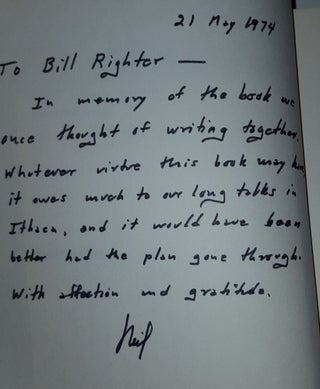 21 May 1974
To Bill Righter —
In memory of the book we
once thought of writing together.
Whatever virtue this book may have
it owes much to our long talks in
Ithaca, and it would have been
better had the plan gone through.
With affection and gratitude.
Neil